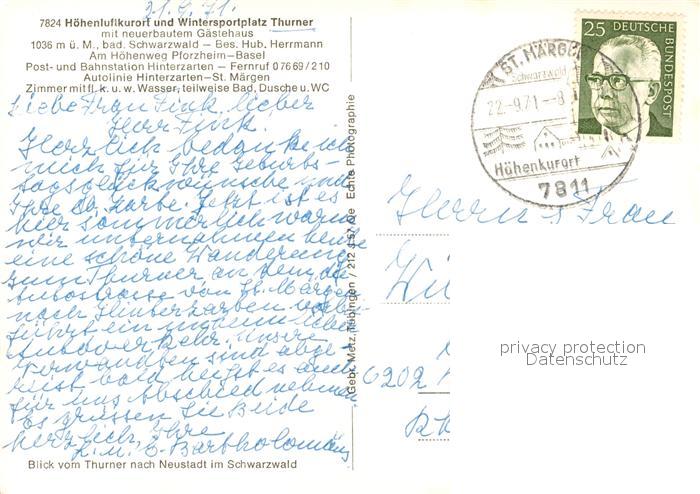 21.9.71.
7824 Höhenluftkurort und Wintersportplatz Thurner
mit neuerbautem Gästehaus
1036 m ü. M., bad. Schwarzwald – Bes. Hub. Herrmann
Am Höhenweg Pforzheim–Basel
Post- und Bahnstation Hinterzarten – Fernruf 07669/210
Autolinie Hinterzarten–St. Märgen
Zimmer mit fl. k. u. w. Wasser, teilweise Bad, Dusche u. WC
Liebe Frau Fink, lieber
Herr Fink.
Herzlich bedanke ich
mich für Ihre Geburts-
tagsglückwünsche und
Ihre Karte. Jetzt ist es
hier sommerlich warm
wir unternahmen heute
eine schöne Wanderung
zum Thurner an dem die
Autostrasse von St. Märgen
nach Hinterzarten
führt ein
Autoverkehr. Unsere
Verwandten sind abge-
reist, bald heißt es auch
für uns Abschied nehmen
Es grüssen Sie Beide
herzlich, Ihre
L. u. E. Bartholomäus
Blick vom Thurner nach Neustadt im Schwarzwald
Gebr. Metz, Tübingen / 212 457 De Echte Photographie
25 DEUTSCHE BUNDESPOST
ST. MÄRGEN
Schwarzwald
22.-9.71.-8
Höhenkurort
7811
Herrn u. Frau
Wi
6202
Rh
privacy protection
Datenschutz